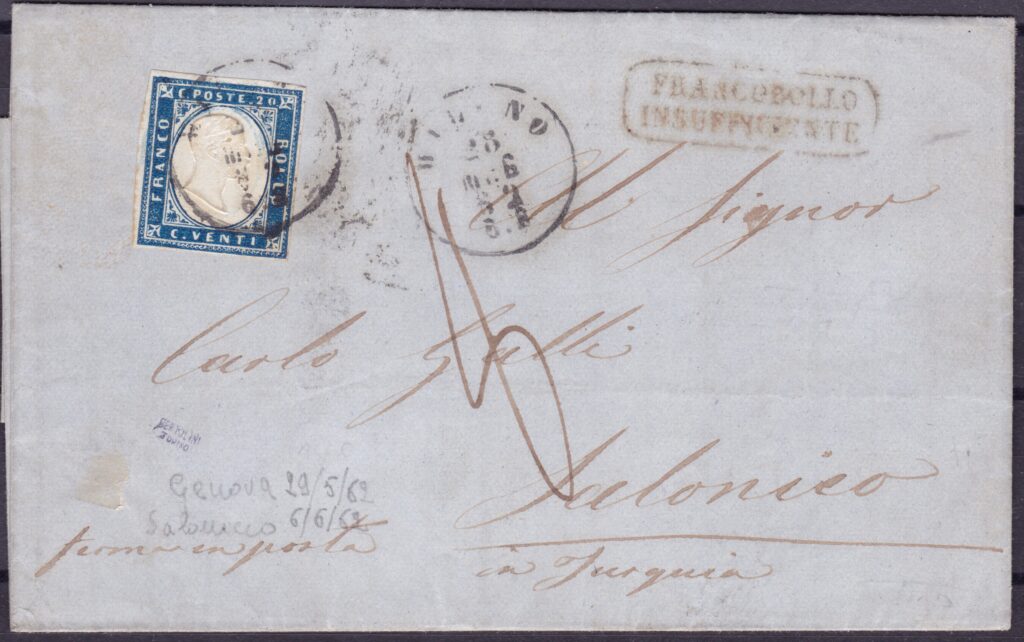 C. POSTE. 20
FRANCO
BOLLO
C. VENTI
MILANO
28
MAG
62
FRANCOBOLLO
INSUFFICIENTE
Al Signor
Carlo Galli
Salonico
in Turquia
BERTOLINI
TORINO
Genova 29/5/62
Salonicco 6/6/62
ferma in posta